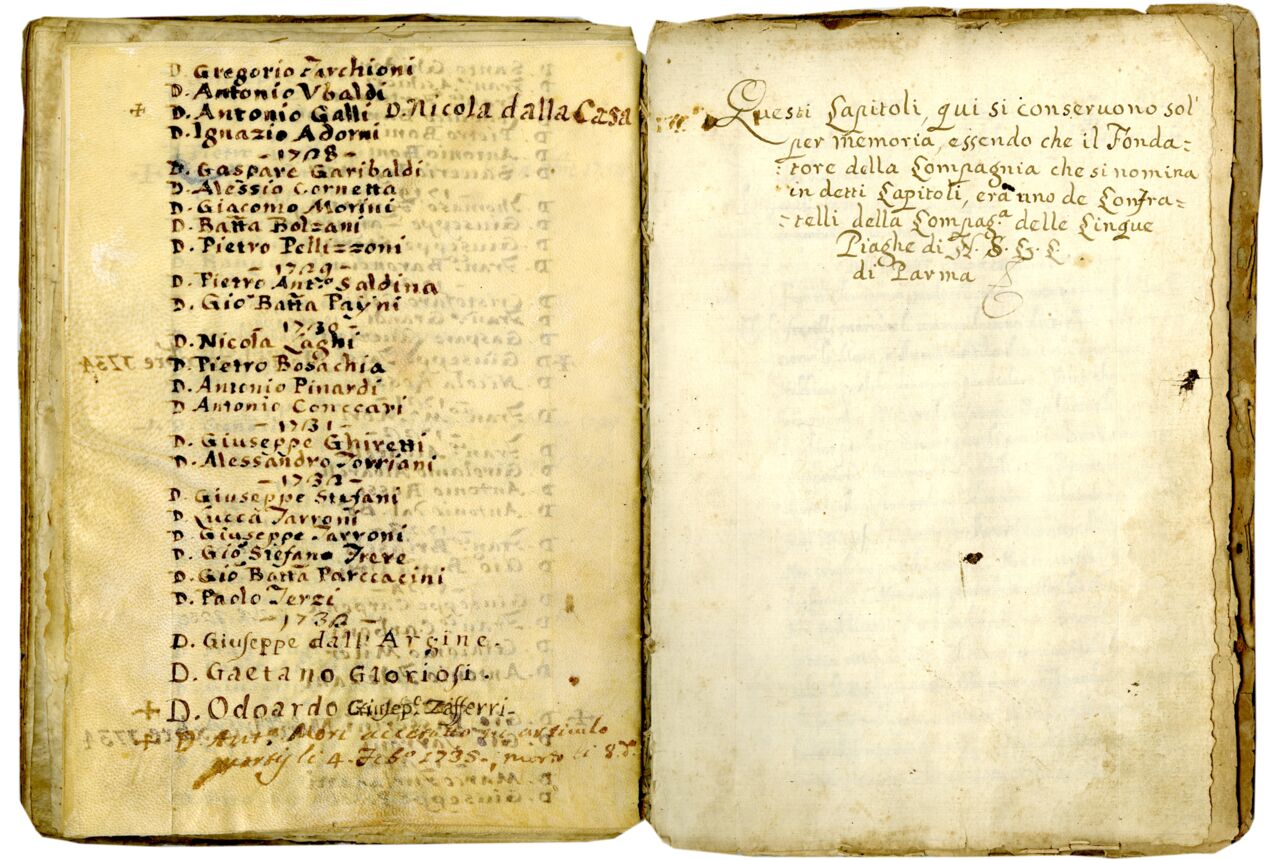 D. Gregorio Tarchioni
D. Antonio Vbaldi
+ D. Antonio Galli D. Nicola dalla Casa
D. Ignazio Adorni
- 1728 -
D. Gaspare Garibaldi
D. Alessio Cornetta
D. Giacomo Morini
D. Batta Bolzani
D. Pietro Pellizzoni
- 1729 -
D. Pietro Ant.º Saldina
D. Gio Batta Payni
- 1730 -
D. Nicola Laghi
D. Pietro Bosachia
D. Antonio Pinardi
D. Antonio Conccari
- 1731 -
D. Giuseppe Ghiretti
D. Alessandro Torriani
- 1732 -
D. Giuseppe Stefani
D. Lucca Tarroni
D. Giuseppe Tarroni
D. Gio Stefano Trere
D. Gio Batta Parccacini
D. Paolo Terzi
D. Giuseppe dall' Argine.
D. Gaetano Gloriosi.
+ D. Odoardo Giusepº Zafferri
+ D. Antº Mori accettato in articulo
li 4. Febº 1735., morto li 8. dº
Questi Capitoli, qui si conservono sol'
per memoria, essendo che il Fonda:
:tore della Compagnia che si nomina
in detti Capitoli, era uno de Confra-
-telli della Compagª delle Cinque
Piaghe di N. S. G. C.
di Parma